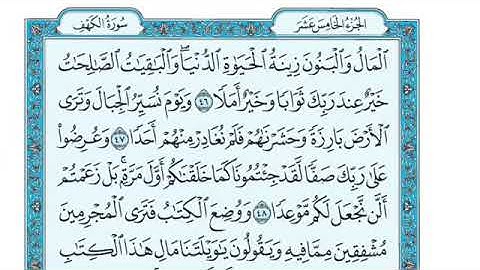 سُورَةُ الكَهْفِ الجُزْءُ الخَامِسَ عَشَرَ
ٱلْمَالُ وَٱلْبَنُونَ زِينَةُ ٱلْحَيَوٰةِ ٱلدُّنْيَاۖ وَٱلْبَٰقِيَٰتُ ٱلصَّٰلِحَٰتُ
خَيْرٌ عِندَ رَبِّكَ ثَوَابًا وَخَيْرٌ أَمَلًا ٤٦ وَيَوْمَ نُسَيِّرُ ٱلْجِبَالَ وَتَرَى
ٱلْأَرْضَ بَارِزَةً وَحَشَرْنَٰهُمْ فَلَمْ نُغَادِرْ مِنْهُمْ أَحَدًا ٤٧ وَعُرِضُوا۟
عَلَىٰ رَبِّكَ صَفًّا لَّقَدْ جِئْتُمُونَا كَمَا خَلَقْنَٰكُمْ أَوَّلَ مَرَّةٍۭۚ بَلْ زَعَمْتُمْ
أَلَّن نَّجْعَلَ لَكُم مَّوْعِدًا ٤٨ وَوُضِعَ ٱلْكِتَٰبُ فَتَرَى ٱلْمُجْرِمِينَ
مُشْفِقِينَ مِمَّا فِيهِ وَيَقُولُونَ يَٰوَيْلَتَنَا مَالِ هَٰذَا ٱلْكِتَٰبِ